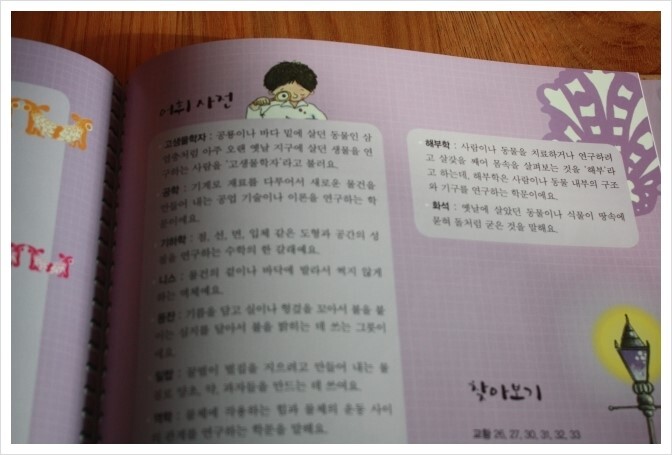 어휘 사전
고생물학자 : 공룡이나 바다 밑에 살던 동물인 삼
엽충처럼 아주 오랜 옛날 지구에 살던 생물을 연
구하는 사람을 '고생물학자'라고 불러요.
공학 : 기계로 재료를 다루어서 새로운 물건을
만들어 내는 공업 기술이나 이론을 연구하는 학
문이에요.
기하학 : 점, 선, 면, 입체 같은 도형과 공간의 성
질을 연구하는 수학의 한 갈래예요.
니스 : 물건의 겉이나 바닥에 발라서 썩지 않게
하는 액체예요.
등잔 : 기름을 담고 실이나 헝겊을 꼬아서 불을 붙
이는 심지를 달아서 불을 밝히는 데 쓰는 그릇이
에요.
밀랍 : 꿀벌이 벌집을 지으려고 만들어 내는 물
질로 양초, 약, 과자들을 만드는 데 쓰여요.
역학 : 물체에 작용하는 힘과 물체의 운동 사이
의 관계를 연구하는 학문을 말해요.
해부학 : 사람이나 동물을 치료하거나 연구하려
고 살갗을 째어 몸속을 살펴보는 것을 '해부'라
고 하는데, 해부학은 사람이나 동물 내부의 구조
와 기구를 연구하는 학문이에요.
화석 : 옛날에 살았던 동물이나 식물이 땅속에
묻혀 돌처럼 굳은 것을 말해요.
찾아보기
교황 26, 27, 30, 31, 32, 33